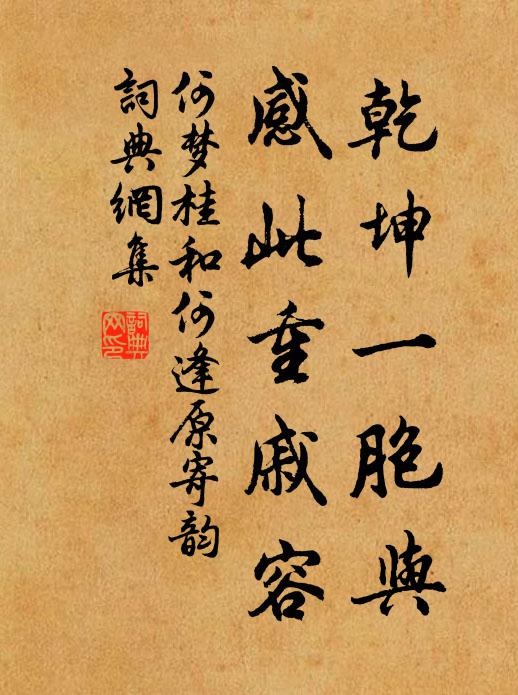 乾坤一胞與
感此重戚容
何梦桂和何逢原寄韵
詞典網集
詞典
网印